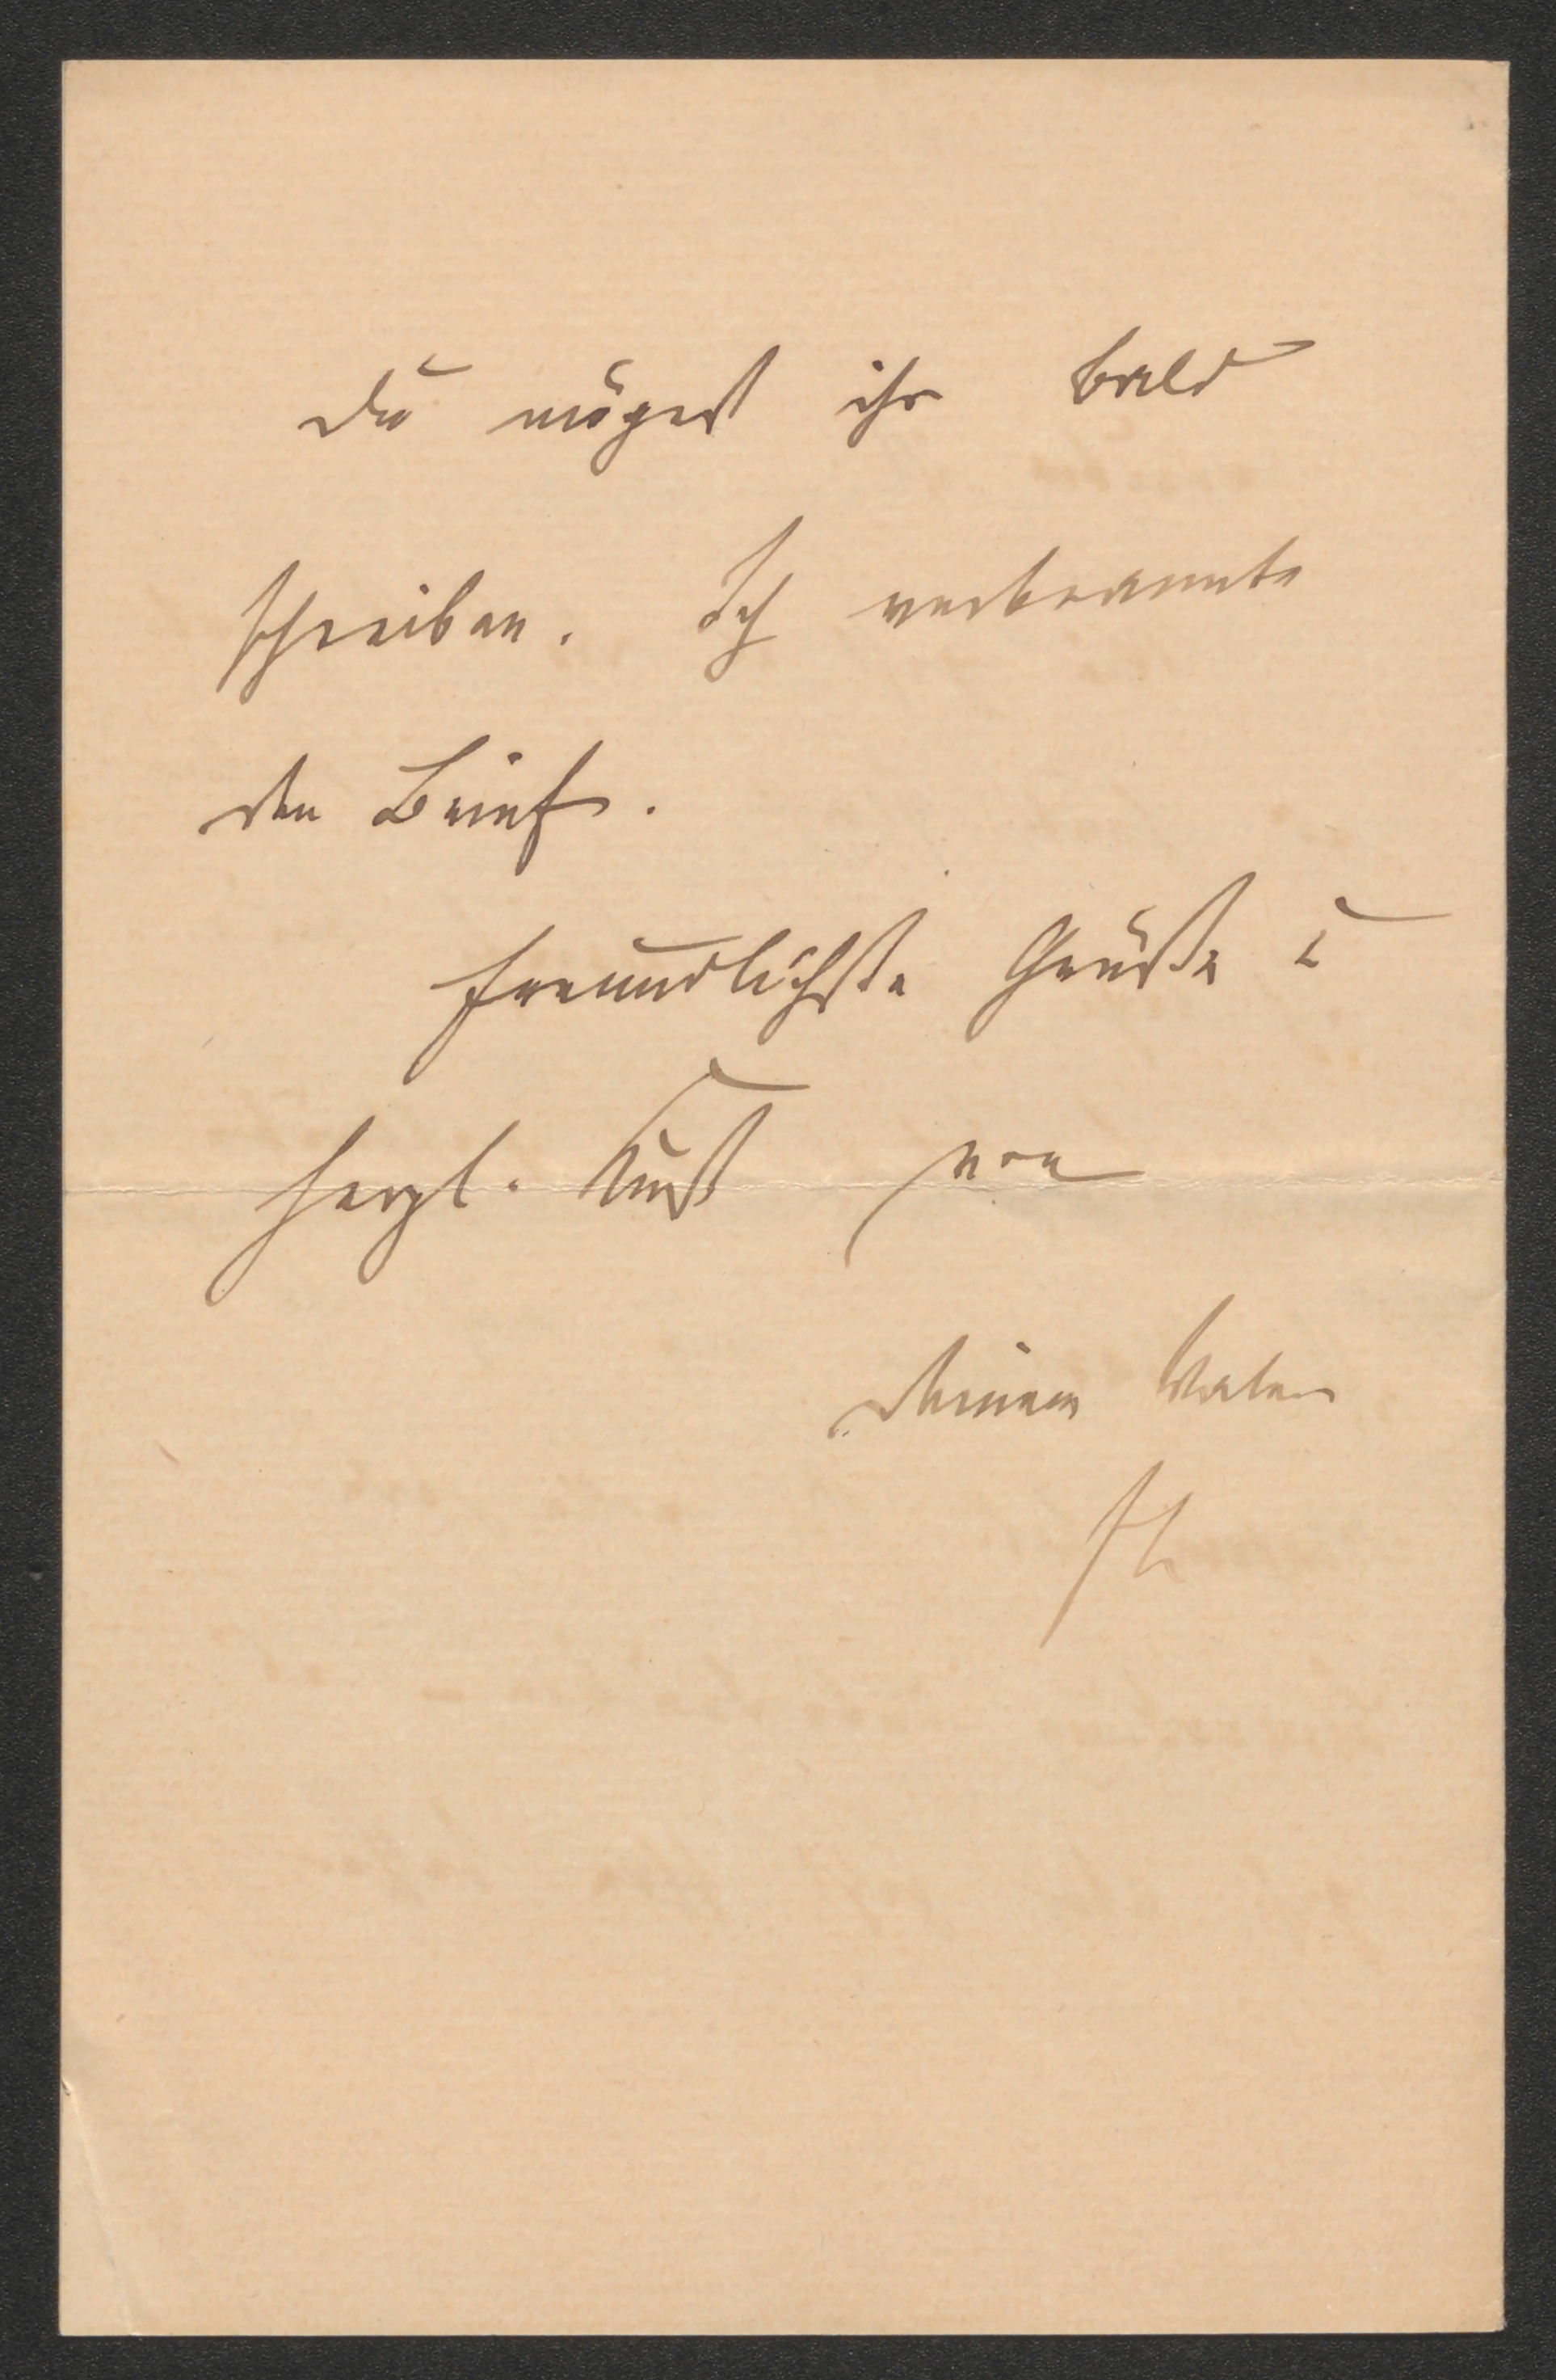 Du mögest ihr bald
schreiben. Ich verbrannte
den Brief.
Freundlichste Grüße u
herzl. Kuß von
Deinem Vater